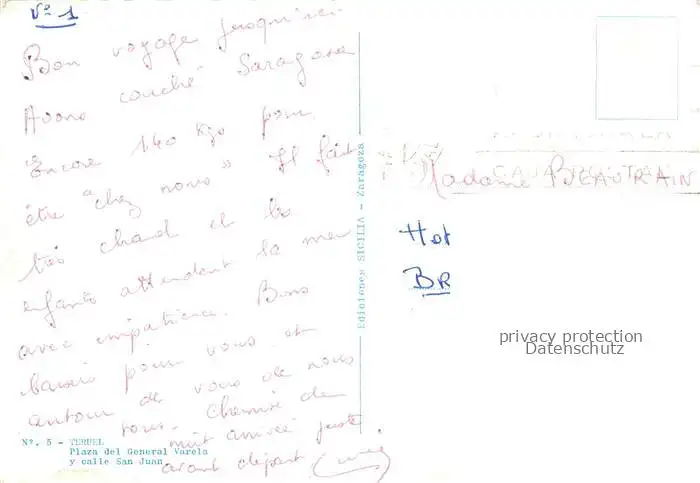 Nº 1
Bon voyage jusqu'ici
Avons couché Saragosse
Encore 140 Kgs pour
être "chez nous" Il fait
très chaud et les
enfants attendent la mer
avec impatience. Bons
baisers pour vous et
autour de vous de nous
tous. Chemise de
nuit arrivée juste
avant départ
Nº. 5 - TERUEL
Plaza del General Varela
y calle San Juan
Ediciones SICILIA - Zaragoza
Madame BEAUTRAIN
Hot
BR
privacy protection
Datenschutz